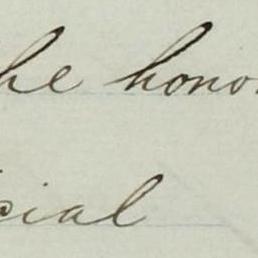 he hono
cial